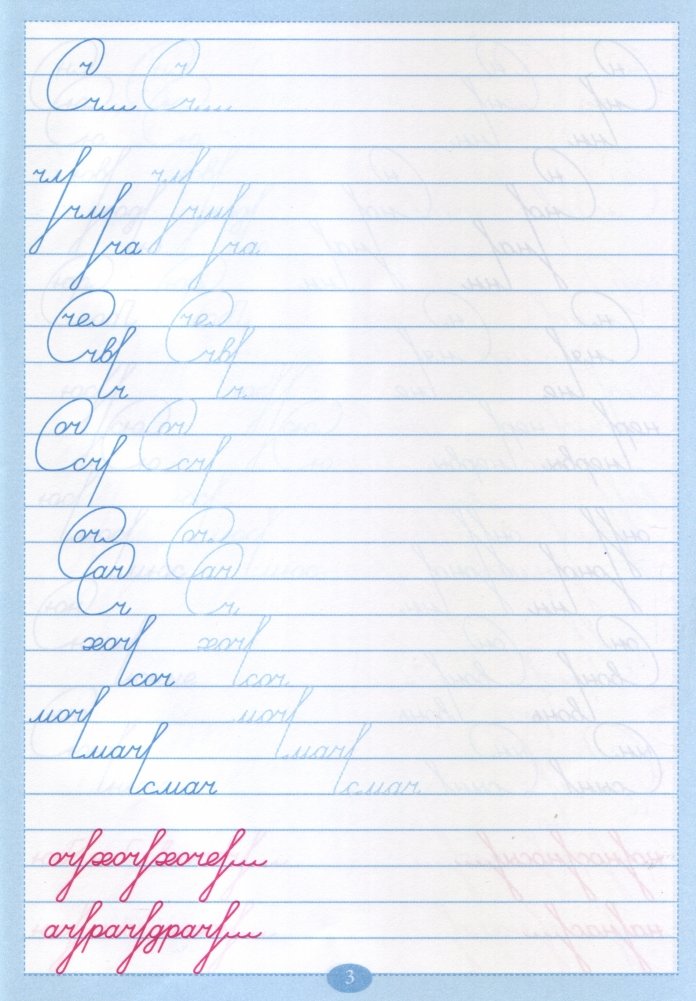 ч ч
ч... ч...
чл чл
чм чм
ча ча
че че
чв чв
ч ч
оч оч
сч сч
оч оч
ач ач
ч ч
хоч хоч
соч соч
моч моч
мач мач
смач смач
оч хоч хоче...
ач рач драч...
3